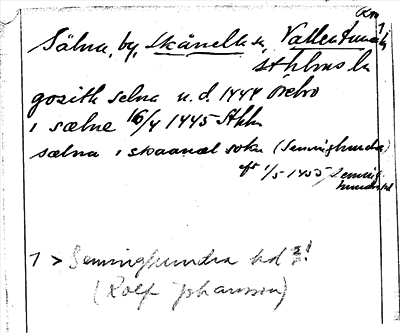 Sälna, by, Skånella sn, Vallentuna 1)
sthlms l
gosith selna u.d. 1444 Örebro
i sælne 16/4 1445 Sthlm
sælna i skaanæl sokn (Seminghundra)
eft 1/5 1455, Seming-
hundra hd
1 > Semninghundra hd ?!
(Rolf Johansson)